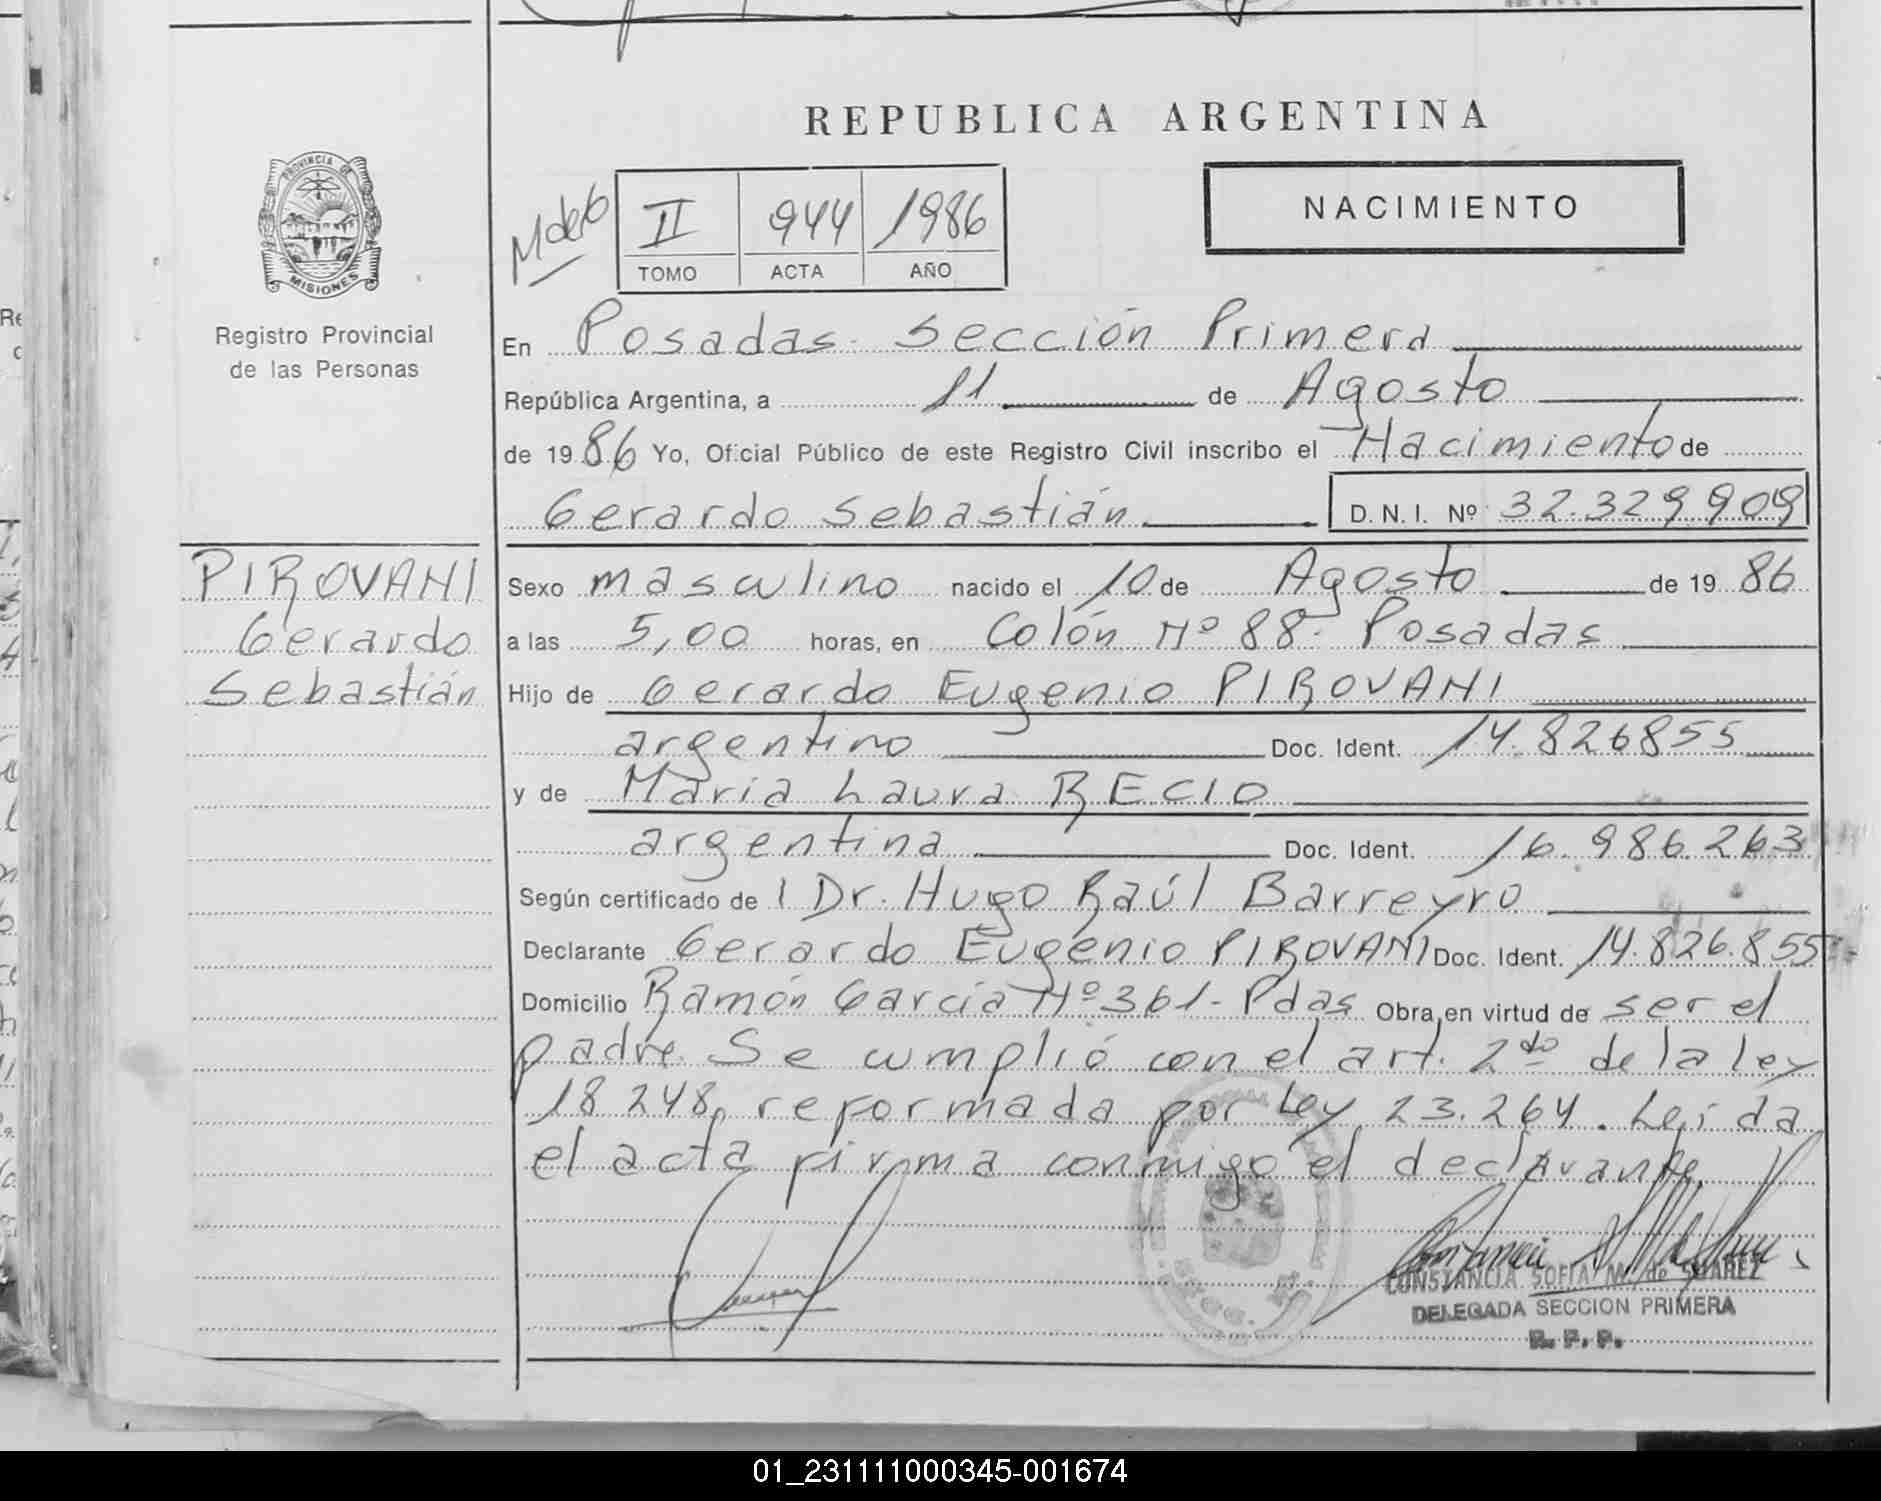 REPUBLICA ARGENTINA
PROVINCIA DE
MISIONES
Registro Provincial
de las Personas
II 944 1986
TOMO ACTA AÑO
NACIMIENTO
En Posadas. Sección Primera
República Argentina, a 11 de Agosto
de 1986 Yo, Oficial Público de este Registro Civil inscribo el Nacimiento de
Gerardo Sebastián D. N. I. Nº 32.329909
PIROVANI
Gerardo
Sebastián
Sexo masculino nacido el 10 de Agosto de 1986
a las 5,00 horas, en Colón Nº 88. Posadas
Hijo de Gerardo Eugenio PIROVANI
argentino Doc. Ident. 14.826855
y de María Laura RECIO
argentina Doc. Ident. 16.986.263
Según certificado de l Dr. Hugo Raúl Barreyro
Declarante Gerardo Eugenio PIROVANI Doc. Ident. 14.826.855
Domicilio Ramón García Nº 361- Pdas Obra en virtud de ser el
padre. Se cumplió con el art. 2do de la ley
18248, reformada por Ley 23.264. Leída
el acta firma conmigo el declarante.
CONSTANCIA SOFIA M. de SUAREZ
DELEGADA SECCION PRIMERA
R. P. P.
01_231111000345-001674